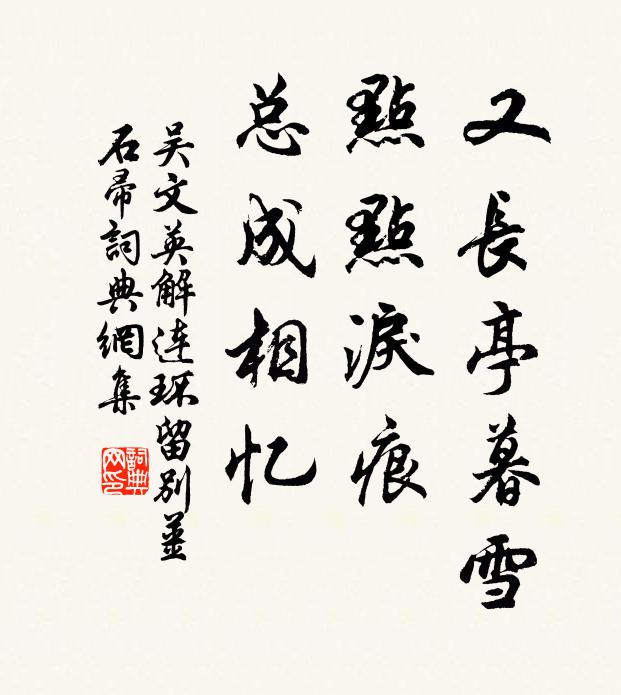 又長亭暮雪
點點淚痕
总成相忆
吴文英解连环留别姜
石帚詞典網集
詞典网印